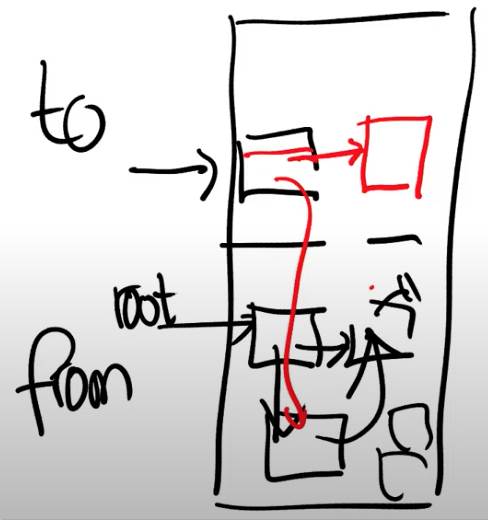 to
root
from